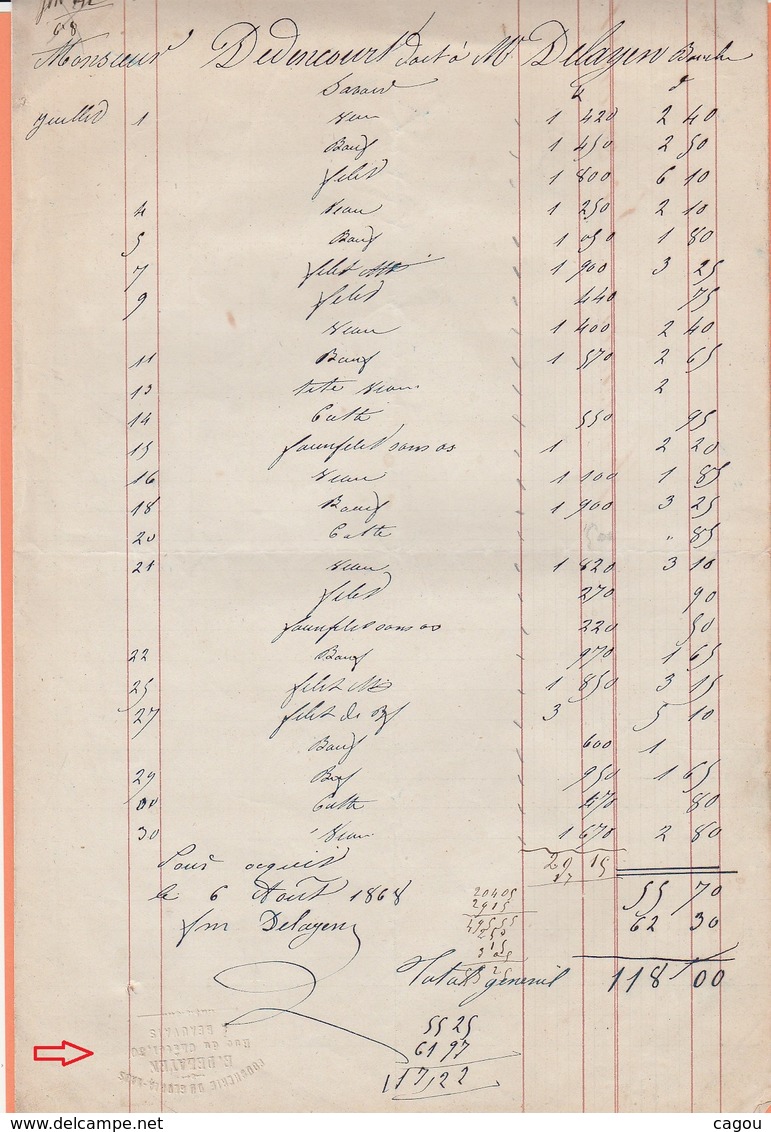 68
Monsieur Dedencourt doit à Mr Delayen Boucher
Savoir
k f
Juillet 1 Veau 1 420 2 40
Boeuf 1 450 2 50
filet 1 800 6 10
4 Veau 1 250 2 10
5 Boeuf 1 050 1 80
7 filet 1 900 3 25
9 filet 440 75
Veau 1 400 2 40
11 Boeuf 1 570 2 65
13 tete Veau 2
14 Culte 550 95
15 faunfilet sans os 1 2 20
16 Veau 1 100 1 85
18 Boeuf 1 900 3 25
20 Culte " 85
21 Veau 1 820 3 10
filet 270 90
faunfilet sans os 220 50
22 Boeuf 970 1 65
25 filet M 1 850 3 15
27 filet de Bf 3 5 10
Boeuf 600 1
29 Boef 950 1 65
30 Culte 470 80
30 Veau 1 670 2 80
Pour acquit 29 15
17
le 6 Août 1868 55 70
fm Delayen 62 30
20405
2915
Total général 118 00
55 25
61 97
117,22
E. DELAYEN
BEAUVAIS
delcampe.net
cagou